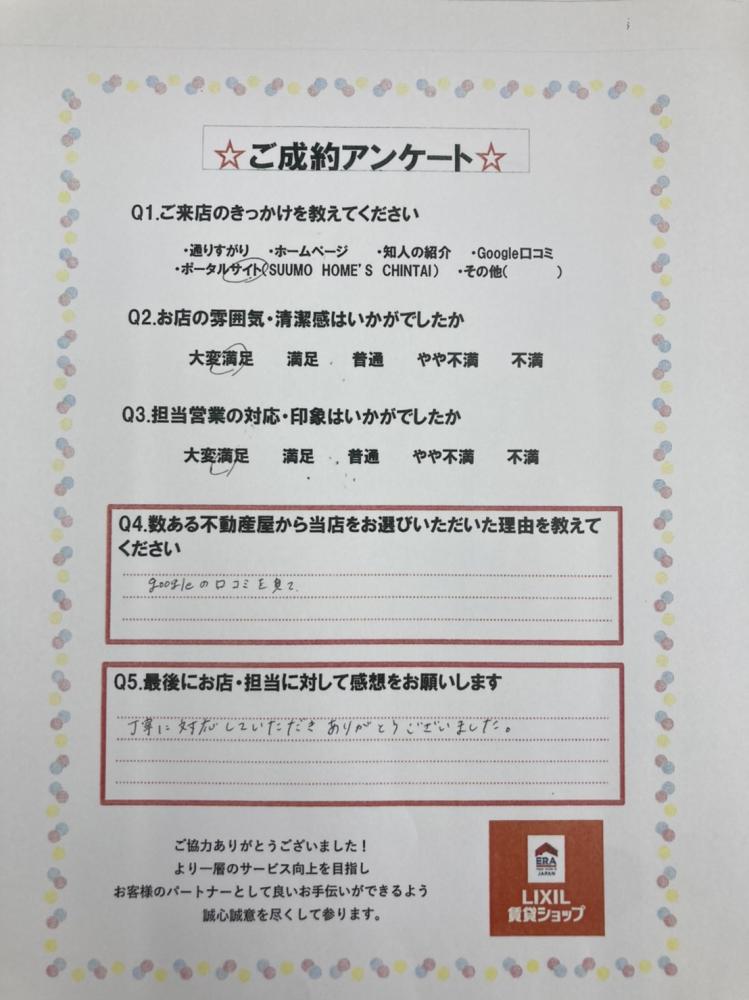 ☆ご成約アンケート☆
Q1.ご来店のきっかけを教えてください
・通りすがり ・ホームページ ・知人の紹介 ・Google口コミ
・ポータルサイト(SUUMO HOME'S CHINTAI) ・その他( )
Q2.お店の雰囲気・清潔感はいかがでしたか
大変満足 満足 普通 やや不満 不満
Q3.担当営業の対応・印象はいかがでしたか
大変満足 満足 普通 やや不満 不満
Q4.数ある不動産屋から当店をお選びいただいた理由を教えて
ください
googleの口コミを見て
Q5.最後にお店・担当に対して感想をお願いします
丁寧に対応していただきありがとうございました。
ご協力ありがとうございました!
より一層のサービス向上を目指し
お客様のパートナーとして良いお手伝いができるよう
誠心誠意を尽くして参ります。
ERA
JAPAN
LIXIL
賃貸ショップ